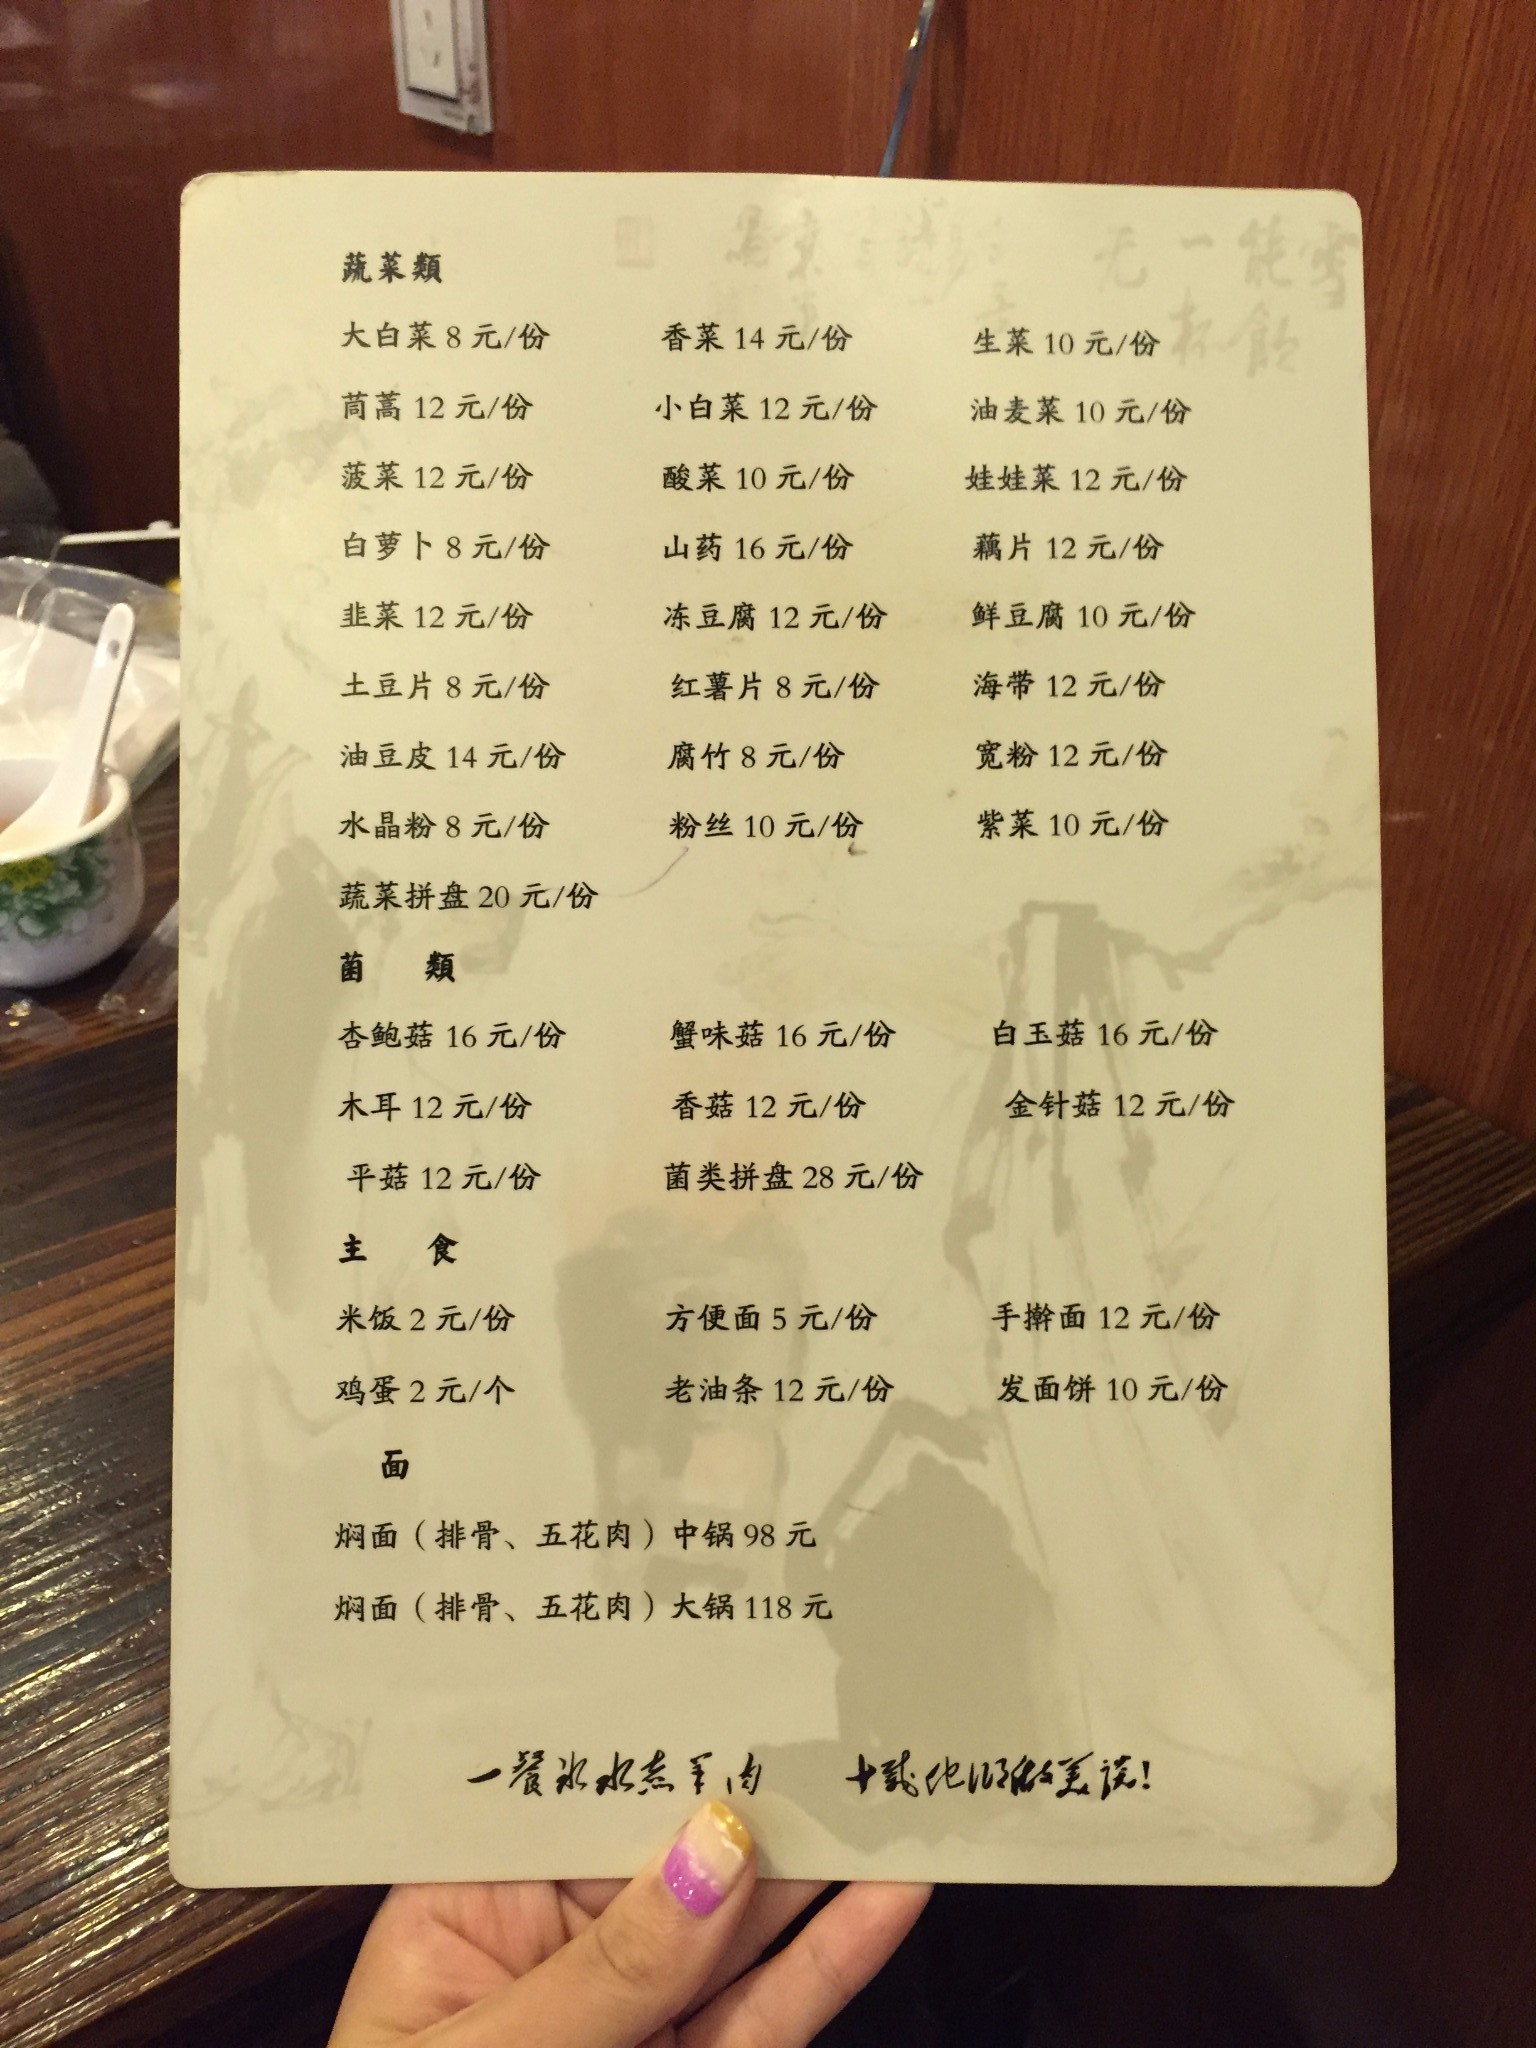 蔬菜類
大白菜 8 元/份 香菜 14 元/份 生菜 10 元/份
茼蒿 12 元/份 小白菜 12 元/份 油麦菜 10 元/份
菠菜 12 元/份 酸菜 10 元/份 娃娃菜 12 元/份
白萝卜 8 元/份 山药 16 元/份 藕片 12 元/份
韭菜 12 元/份 冻豆腐 12 元/份 鲜豆腐 10 元/份
土豆片 8 元/份 红薯片 8 元/份 海带 12 元/份
油豆皮 14 元/份 腐竹 8 元/份 宽粉 12 元/份
水晶粉 8 元/份 粉丝 10 元/份 紫菜 10 元/份
蔬菜拼盘 20 元/份
菌 類
杏鲍菇 16 元/份 蟹味菇 16 元/份 白玉菇 16 元/份
木耳 12 元/份 香菇 12 元/份 金针菇 12 元/份
平菇 12 元/份 菌类拼盘 28 元/份
主 食
米饭 2 元/份 方便面 5 元/份 手擀面 12 元/份
鸡蛋 2 元/个 老油条 12 元/份 发面饼 10 元/份
面
焖面（排骨、五花肉）中锅 98 元
焖面（排骨、五花肉）大锅 118 元
一餐冰水煮羊肉 十载他乡做美谈!